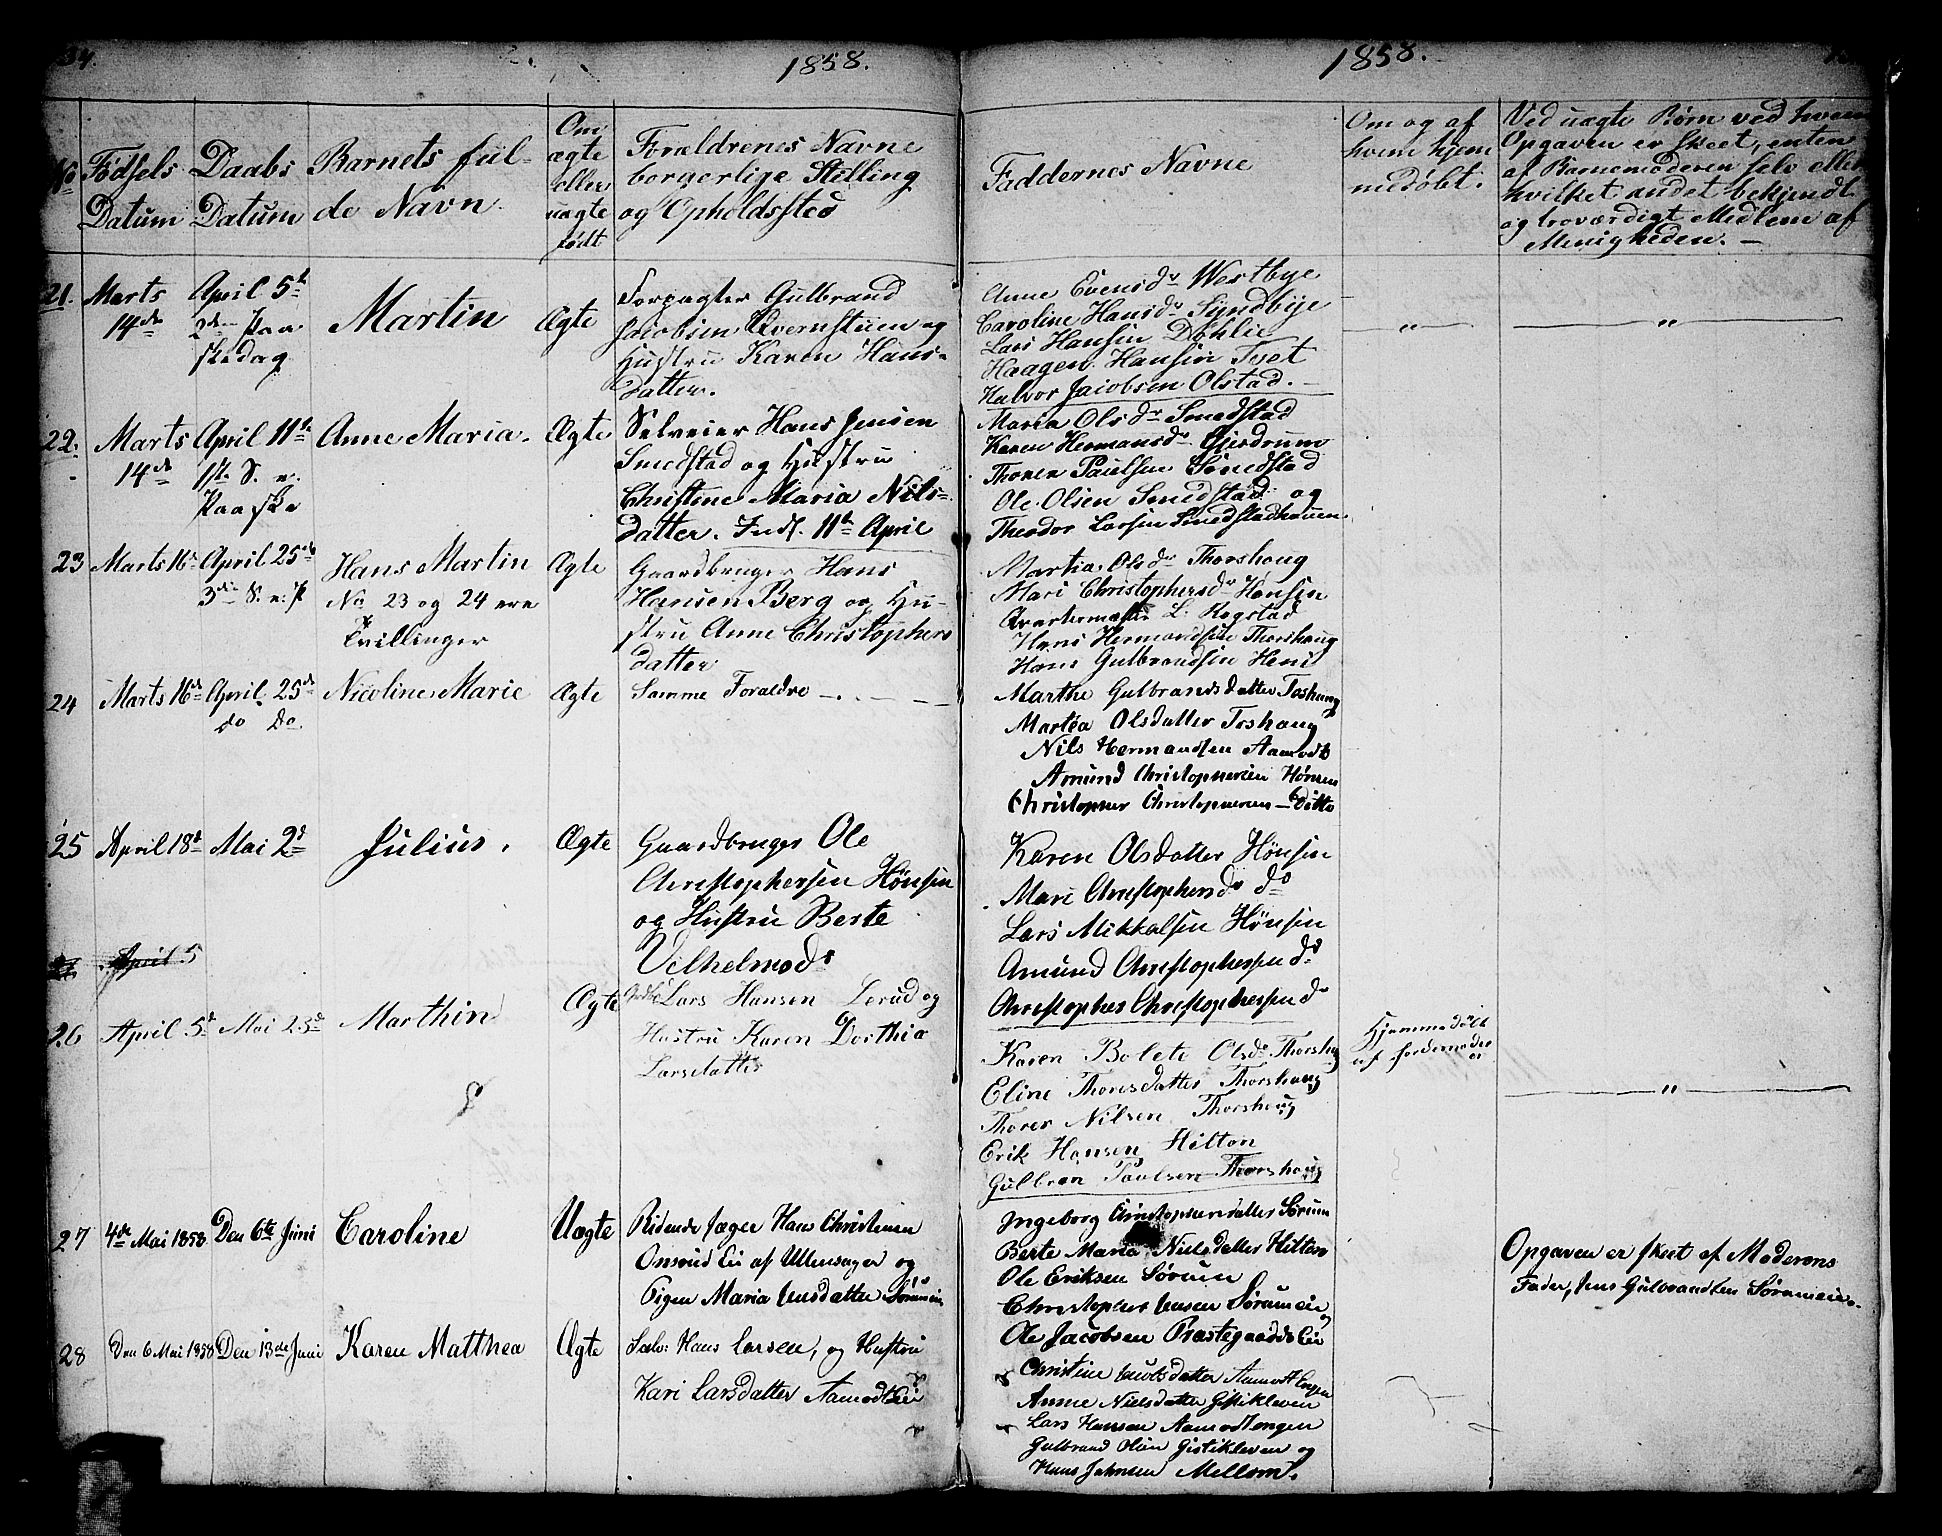 34.
1858.
1858.
No
Fødsels
Datum
Daabs
Datum
Barnets ful-
de Navn.
Om
ægte
eller
uægte
født
Forældrenes Navne
borgerlige Stilling
og Opholdssted
Faddernes Navne
Om og af
hvem hjem
medøbt.
Ved uægte Børn ved hvem
Opgaven er skeet, enten
af Barnemoderen selv eller
hvilket andet bekjendt
og troværdigt Medlem af
Menigheden. —
21.
Marts
14de
April 5te
2den Paa
skedag
Martin
Ægte
Forpagter Gulbrand
Jacobsen Qvernstuen og
Hustru Karen Hans-
datter.
Anne Evensdr Westbye
Caroline Hansdr Syndbye
Lars Hansen Døhlie
Haagen Hansen Toset
Halvor Jacobsen Olstad. —
"
"
22.
Marts
14de
April 11te
1ste S. e.
Paaske
Anne Maria.
Ægte
Selveier Hans Jensen
Smedstad og Hustru
Christine Maria Nils-
datter. Inds. 11te April
Maria Olsdr Smedstad
Karen Hermansdr Gjesdrum
Thorer Paulsen Smedstad
Ole Olsen Smedstad og
Theodor Larsen Smedstadhauen
23
Marts 16de
April 25de
3die S. e. P
Hans Martin
No 23 og 24 ere
Tvillinger
Ægte
Gaardbruger Hans
Hansen Berg og Hu-
stru Anne Christophers
datter
Martia Olsdr Thorshaug
Mari Christophersdr Hønsin
Qvartermester L. Rogstad
Hans Hermandsen Thorshaug
Hans Gulbrandsen Heni
24
Marts 16de
April 25de
do do
Nicoline Marie
Ægte
Samme Forældre —.
Marthe Gulbrandsdatter Toshaug
Martea Olsdatter Toshaug
Nils Hermansen Aamodt
Amund Christophersen Hønsen
Christopher Christophersen — Ditto
25
April 18d
Mai 2d
Julius.
Ægte
Gaardbruger Ole
Christophersen Hønsin
og Hustru Berte
Vilhelmsdr
Karen Olsdatter Hønsin
Mari Christophersdr do
Lars Mikkelsen Hønsin
Amund Christophersen do
Christopher Christophersen do
April 5
26
April 5d
Mai 23d
Marthin
Ægte
Lars Hansen Lerud og
Hustru Karen Dorthia
Larsdatter
Karen Bolete Olsdr Thorshaug
Eline Thoresdatter Thorshaug
Thorer Nilsen Thorshaug
Erik Hansen Hilton
Gulbran Paulsen Thorshaug
Hjemmedøbt
af Jordemoder
"
27
4de Mai 1858
Den 6te Juni
Caroline
Uægte
Ridende Jæger Hans Christensen
Onsrud Eie af Ullensager og
Pigen Maria Jensdatter Sørumeie
Ingeborg Christophersdatter Sørum
Berte Maria Nielsdatter Hilton
Ole Eriksen Sørum
Christopher Jensen Sørumeie
Ole Jacobsen Præstegaardseie
Opgaven er skeet af Moderens
Fader, Jens Gulbrandsen Sørumeie.
28
Den 6 Mai 1858
Den 13de Juni
Karen Matthea
Ægte
Selv: Hans Larsen, og Hustru
Kari Larsdatter Aamodteie
Christine Jacobsdatter Aamodtengen
Anne Nielsdatter Gistikleven
Lars Hansen Aamodtengen
Gulbrand Olsen Gistikleven og
Hans Johnsen Mellom.